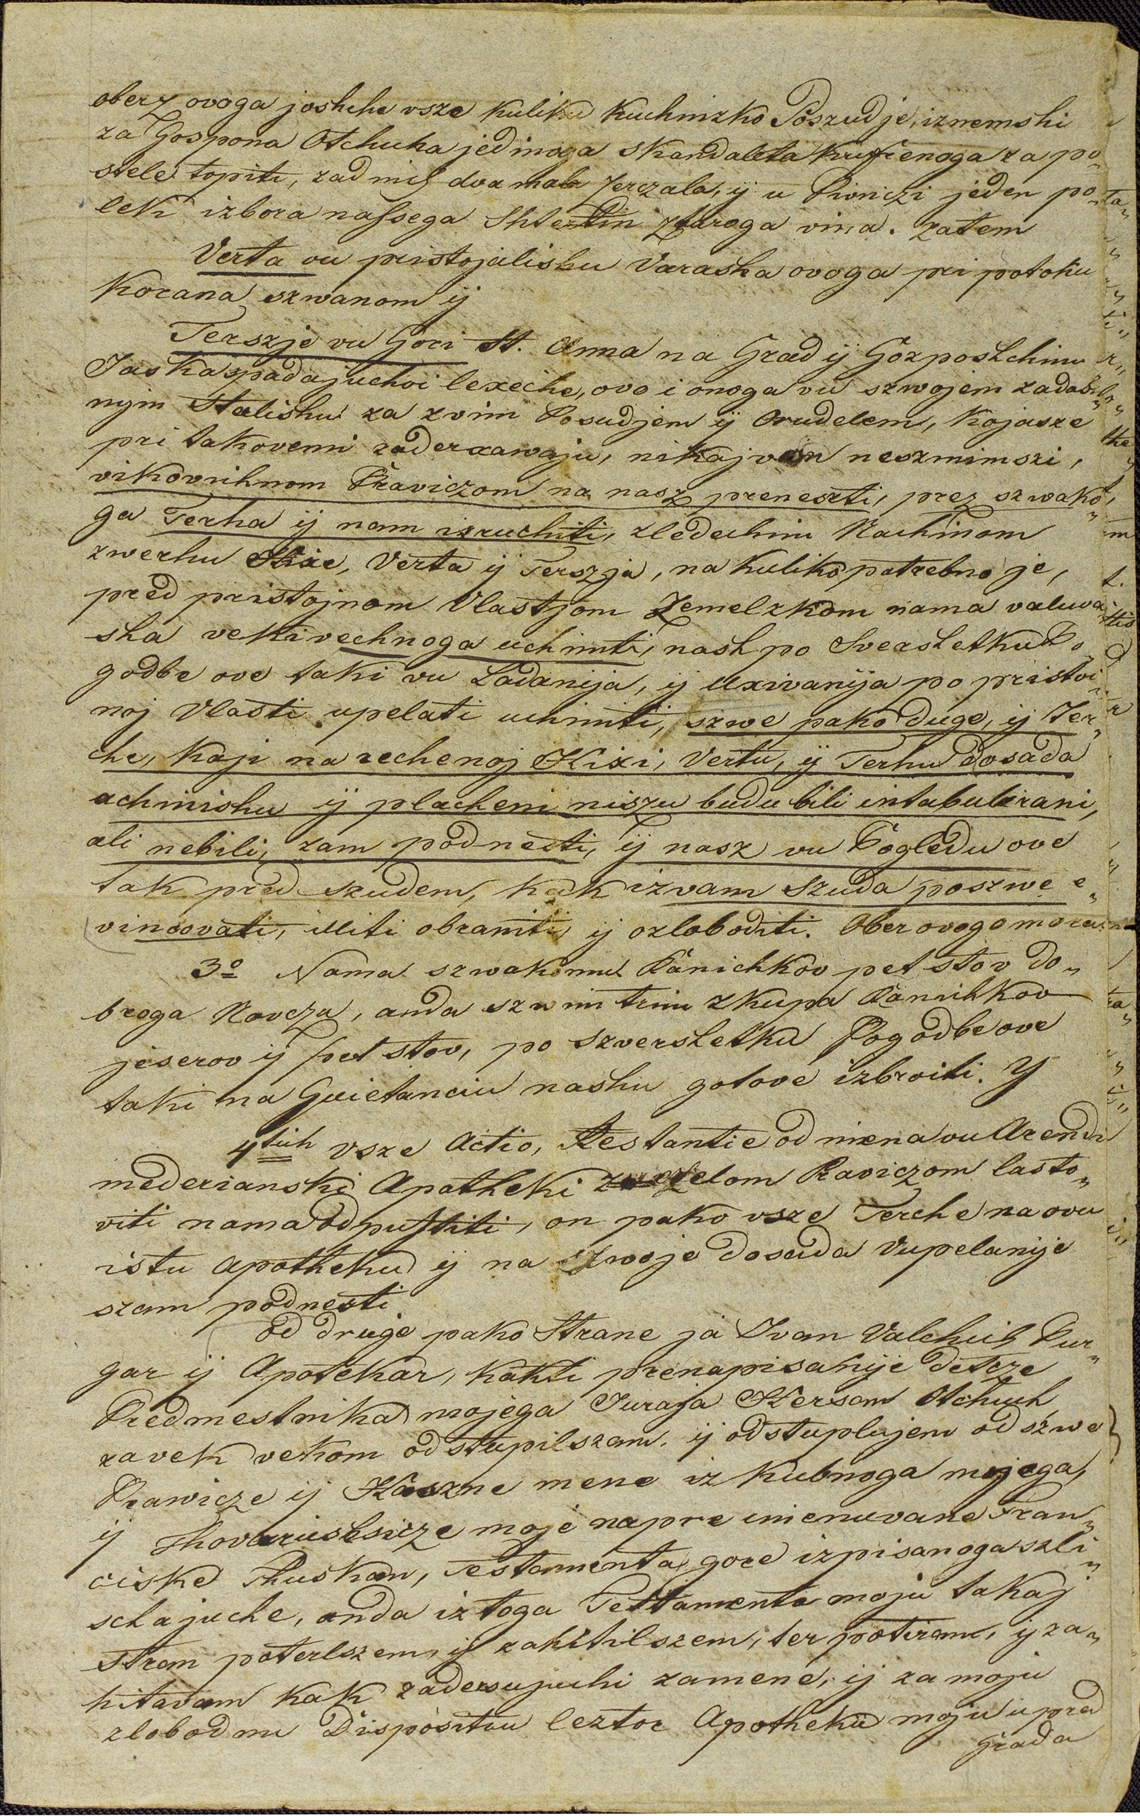 oberz ovoga joshche vsze kuliku kuchnizko Poszudje, iznemshi
za Gospona Otchuha jedinoga skandaleta kuffrenoga za po„
stele topiti, zadnich dva mala zerczala, ij u Pivniczi jeden po„
leki izbora nassega Shtertin ztaroga vina. zatem
Verta vu pristojalishu Varasha ovoga pri potoku
Korana szwanom ij
Terszje vu Gori St. Anna na Grad ij Gozposhchinu
Jaska spadajuchoi lexeche, ovo i onoga vu szwojem zadash
nym Stalishu za zvim Posudjem ij Orudelem, kojasze
pri takovemi zaderxawaju, nikaj vam neszmimszi,
vikovichnom Praviczom na nasz preneszti, prez szwako„
ga Terha ij nam izruchiti, zledechim Nachinom
zwerhu Hixe, Verta ij Terszja, na kuliko potrebno je,
pred pristojnom Vlastjom Zemelzkom nama valuva
ska vekivechnoga uchiniti, nash po Svershetku Po
godbe ove taki vu Ladanija, ij Uxivanija po pristoi
noj Vlasti upelati uchiniti, szwe pako duge, ij Ter„
che, koji na rechenoj Hixi, Vertu, ij Terhu dosada
uchinishu ij placheni niszu budu bili intabulirani,
ali nebili, szam podneszti, ij nasz vu Pogledu ove
tak pred szudem, kak izvam Szuda poszwe e„
vincovati, illiti obraniti ij ozloboditi. Ober ovoga mora
3º Nama szwakomu Ranichkov pet stov do„
broga Novcza, anda szwim trim zkupa Ranichkov
jezerov ij pet stov, po szvershetku Pogodbe ove
taki na Quietanciu nashu gotove izbroiti. Y
4tich vsze Actio, Restantie od mena vu Arendi
mederianski Apotheki zwezelom Raviczom lasto„
viti nama odpustiti, on pako vsze Terche na ovu
istu apotheku ij na szwoje dosada Vupelanije
szam podnesti.
Od druge pako Strane ja Ivan Valchich Pur„
gar ij Apotekar, kakti prenapisanije Detcze
Predmestnika mojega Juraja Hersan Otchuh
za vek vekom odstupilszam, ij odstuplujem od szwe
Prawicze ij Kaszne mene iz kubnoga mojega,
ij Thovarushicze moje napre imenuvane Fran„
ciske Ruskan, Testamenta gore izpisanoga szli„
schajuche, anda iz toga Testamenta moju takaj
Stran poterlszem, ij zahitilszem, ter potiram, ij za„
hitavam kak zadersujuchi zamene, ij za moju
zlobodnu Dispositiu leztor Apotheku moju u pred
Grada